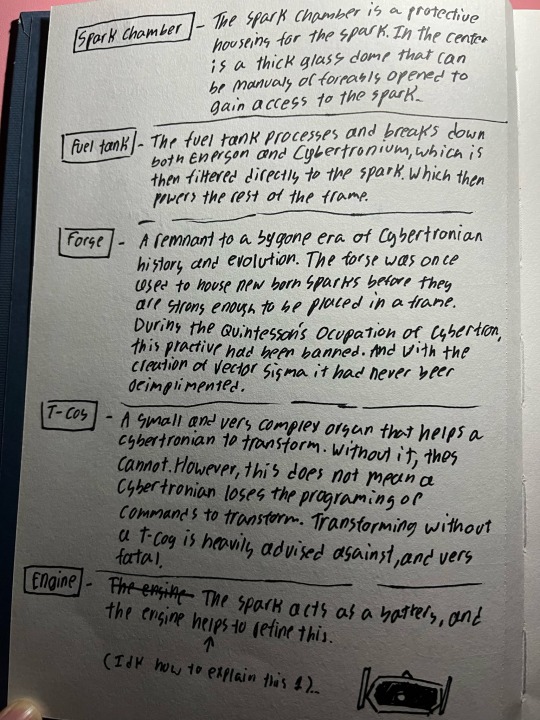 Spark Chamber - The spark chamber is a protective
houseing for the spark. In the center
is a thick glass dome that can
be manualy or foreably opened to
gain access to the spark.
Fuel tank - The fuel tank processes and breaks down
both Energon and Cybertronium, which is
then filtered directly to the spark. Which then
powers the rest of the frame.
Forge - A remnant to a bygone era of Cybertronian
history and evolution. The forge was once
used to house new born sparks before they
are strong enough to be placed in a frame.
During the Quintesson's Ocupation of Cybertron,
this practive had been banned. And with the
creation of Vector Sigma it had never been
reimplimented.
T-Cog - A small and very complex organ that helps a
cybertronian to transform. Without it, they
cannot. However, this does not mean a
Cybertronian loses the programing or
commands to transform. Transforming without
a T-Cog is heavily advised against, and very
fatal.
Engine - The engine The spark acts as a battery, and
the engine helps to refine this.
(Idk how to explain this 1)..